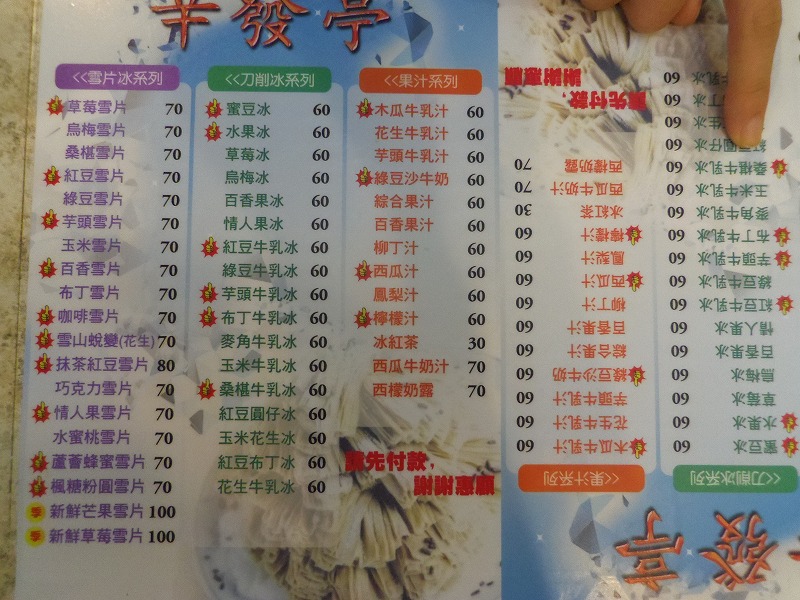 辛發亭
<<雪片冰系列
草莓雪片 70
烏梅雪片 70
桑椹雪片 70
紅豆雪片 70
綠豆雪片 70
芋頭雪片 70
玉米雪片 70
百香雪片 70
布丁雪片 70
咖啡雪片 70
雪山蛻變(花生) 70
抹茶紅豆雪片 80
巧克力雪片 70
情人果雪片 70
水蜜桃雪片 70
蘆薈蜂蜜雪片 70
楓糖粉圓雪片 70
季 新鮮芒果雪片 100
季 新鮮草莓雪片 100
<<刀削冰系列
蜜豆冰 60
水果冰 60
草莓冰 60
烏梅冰 60
百香果冰 60
情人果冰 60
紅豆牛乳冰 60
綠豆牛乳冰 60
芋頭牛乳冰 60
布丁牛乳冰 60
麥角牛乳冰 60
玉米牛乳冰 60
桑椹牛乳冰 60
紅豆圓仔冰 60
玉米花生冰 60
紅豆布丁冰 60
花生牛乳冰 60
<<果汁系列
木瓜牛乳汁 60
花生牛乳汁 60
芋頭牛乳汁 60
綠豆沙牛奶 60
綜合果汁 60
百香果汁 60
柳丁汁 60
西瓜汁 60
鳳梨汁 60
檸檬汁 60
冰紅茶 30
西瓜牛奶汁 70
西檬奶露 70
請先付款,
謝謝惠顧
發亭
<<刀削冰系列
蜜豆冰 60
水果冰 60
草莓冰 60
烏梅冰 60
百香果冰 60
情人果冰 60
紅豆牛乳冰 60
綠豆牛乳冰 60
芋頭牛乳冰 60
布丁牛乳冰 60
麥角牛乳冰 60
玉米牛乳冰 60
桑椹牛乳冰 60
紅豆圓仔冰 60
生冰 60
丁冰 60
牛乳冰 60
<<果汁系列
木瓜牛乳汁 60
花生牛乳汁 60
芋頭牛乳汁 60
綠豆沙牛奶 60
綜合果汁 60
百香果汁 60
柳丁汁 60
西瓜汁 60
鳳梨汁 60
檸檬汁 60
冰紅茶 30
西瓜牛奶汁 70
西檬奶露 70
請先付款,
謝謝惠顧